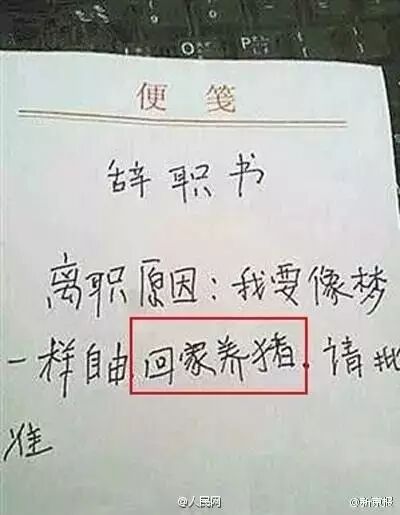 便笺
辞职书
离职原因：我要像梦
一样自由.回家养猪.请批
准
@人民网
@新京报